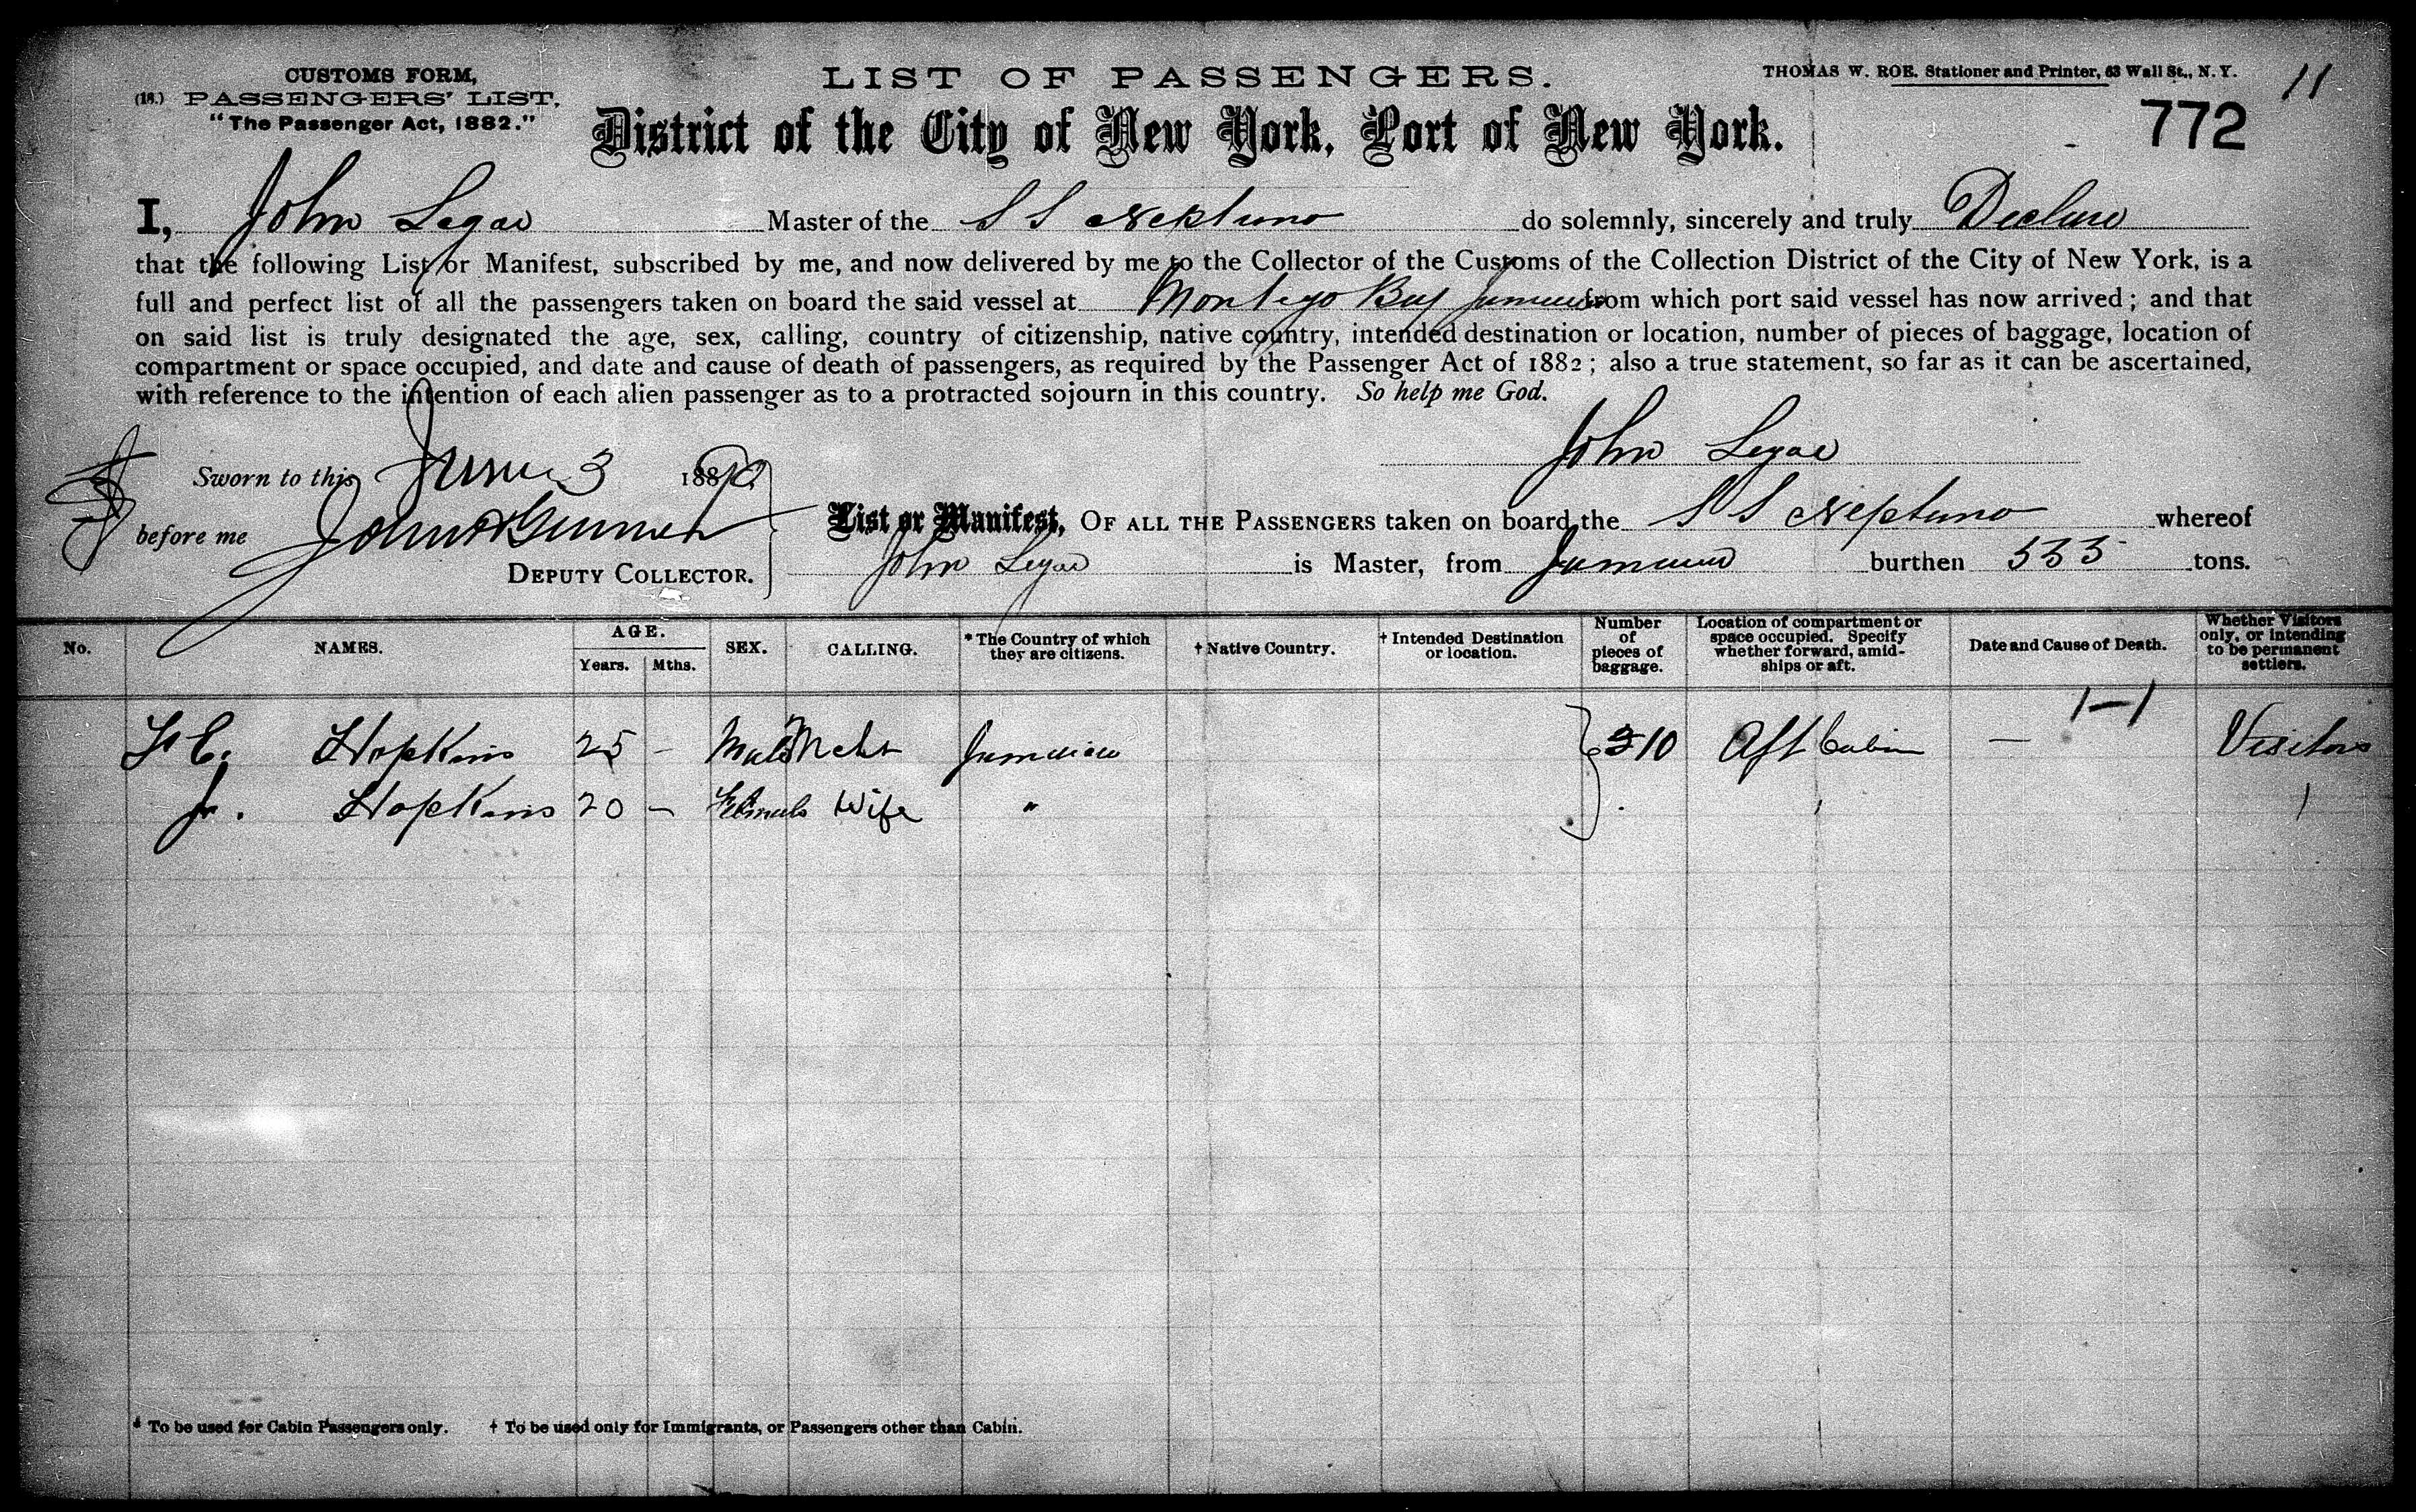 CUSTOMS FORM,
(18.) PASSENGERS' LIST,
"The Passenger Act, 1882."
LIST OF PASSENGERS.
THOMAS W. ROE. Stationer and Printer, 63 Wall St., N. Y.
11
District of the City of New York, Port of New York.
772
I, John Legae Master of the S S Neptuno do solemnly, sincerely and truly Declare
that the following List or Manifest, subscribed by me, and now delivered by me to the Collector of the Customs of the Collection District of the City of New York, is a
full and perfect list of all the passengers taken on board the said vessel at Montego Bay Jamaica from which port said vessel has now arrived; and that
on said list is truly designated the age, sex, calling, country of citizenship, native country, intended destination or location, number of pieces of baggage, location of
compartment or space occupied, and date and cause of death of passengers, as required by the Passenger Act of 1882; also a true statement, so far as it can be ascertained,
with reference to the intention of each alien passenger as to a protracted sojourn in this country. So help me God.
John Legae
Sworn to this June 3 1890
before me
DEPUTY COLLECTOR.
List or Manifest, OF ALL THE PASSENGERS taken on board the S S Neptuno whereof
John Legae is Master, from Jamaica burthen 535 tons.
No. NAMES. AGE. Years. Mths. SEX. CALLING. * The Country of which they are citizens. † Native Country. † Intended Destination or location. Number of pieces of baggage. Location of compartment or space occupied. Specify whether forward, amidships or aft. Date and Cause of Death. Whether Visitors only, or intending to be permanent settlers.
1—1
Hopkins 25 - Male Mcht Jamaica 10 Aft Cabin — Visitors
Hopkins 20 - Female Wife "
* To be used for Cabin Passengers only. † To be used only for Immigrants, or Passengers other than Cabin.